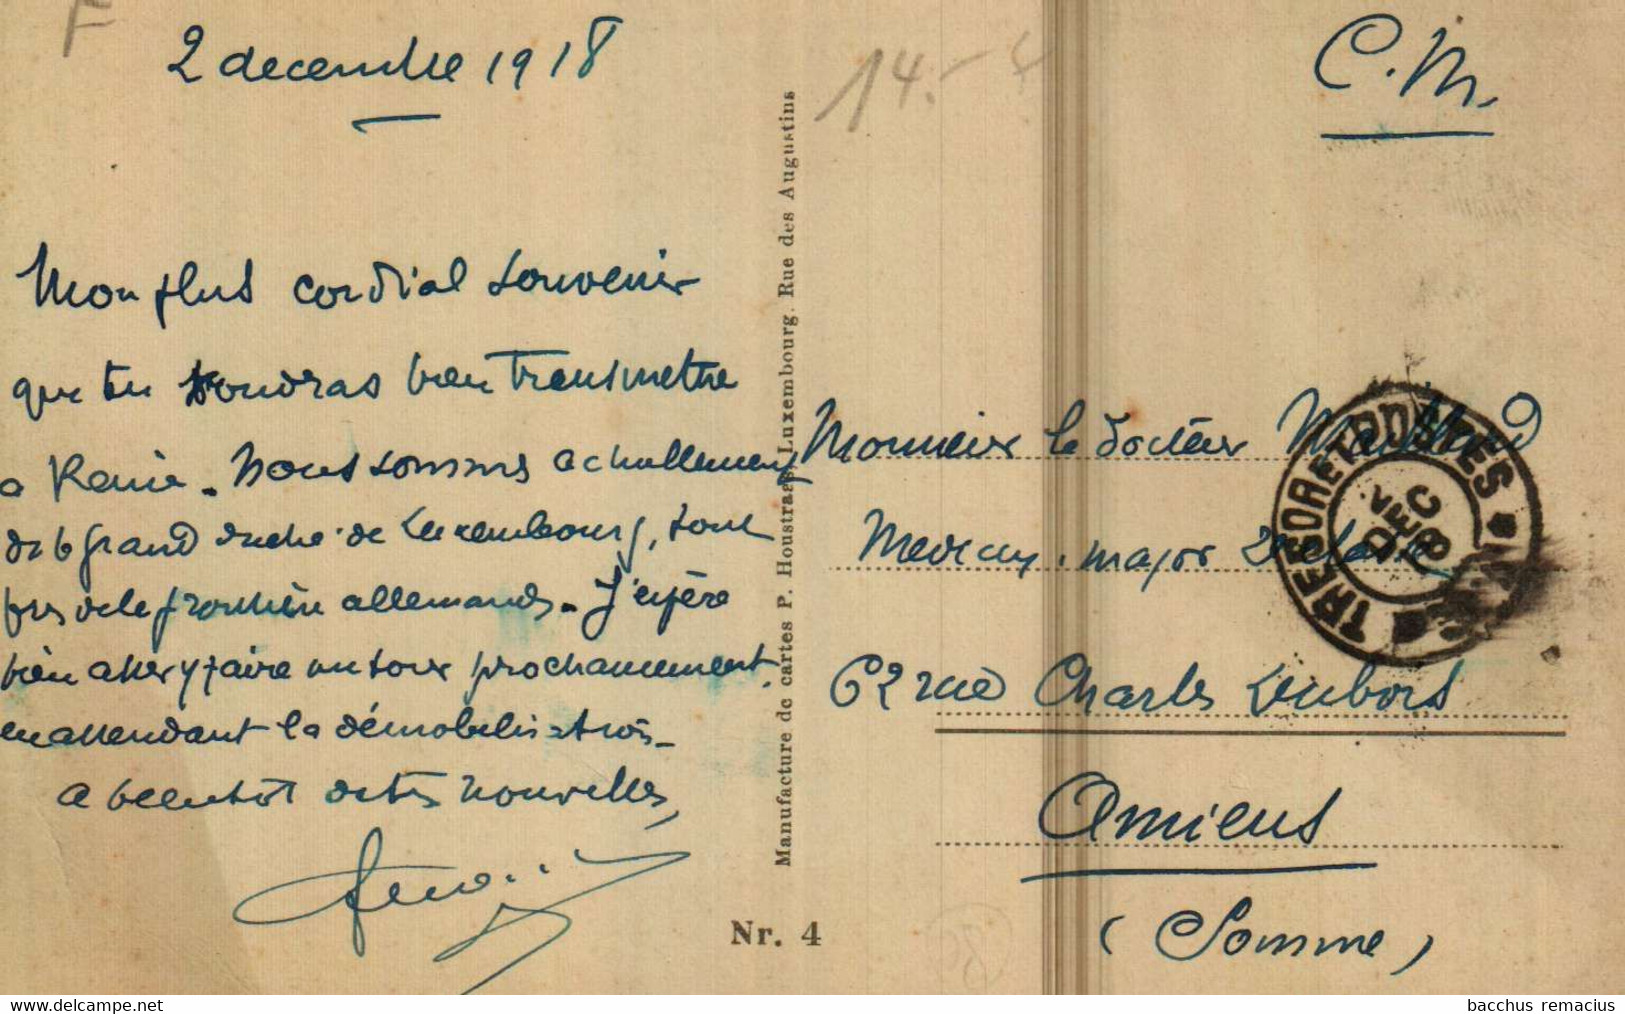 F
2 decembre 1918
14.-
C.M.
Mon plus cordial souvenir
que tu voudras bien transmettre
a Renée. Nous sommes actuellement
ds le grand duché de Luxembourg, tout
près de la frontière allemande. J'espère
bien aller y faire un tour prochainement,
en attendant la démobilisation.
a bientôt de tes nouvelles,
Manufacture de cartes P. Houstraas, Luxembourg. Rue des Augustins
Nr. 4
Monsieur le docteur
major
TRESOR ET POSTES
DEC
18
62 rue Charles Dubois
Amiens
(Somme)
bacchus remacius